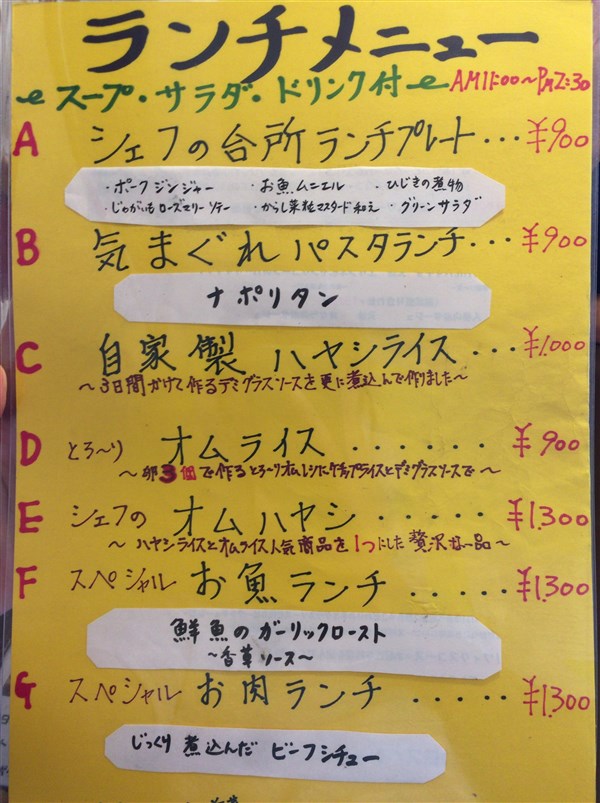 ランチメニュー
スープ・サラダ・ドリンク付 AM11:00〜PM2:30
A シェフの台所ランチプレート・・・¥900
・ポークジンジャー ・お魚ムニエル ・ひじきの煮物
・じゃがいもローズマリーソテー ・からし菜粒マスタード和え ・グリーンサラダ
B 気まぐれパスタランチ・・・¥900
ナポリタン
C 自家製ハヤシライス・・・¥1,000
〜3日間かけて作るデミグラスソースを更に煮込んで作りました〜
D とろ〜り オムライス・・・・・・¥900
〜卵3個で作るとろ〜りオムレツにケチャップライスとデミグラスソースで〜
E シェフの オムハヤシ・・・・・¥1.300
〜ハヤシライスとオムライス人気商品を1つにした贅沢な一品〜
F スペシャル お魚ランチ・・・・・¥1.300
鮮魚のガーリックロースト
〜香草ソース〜
G スペシャル お肉ランチ・・・・・¥1.300
じっくり煮込んだ ビーフシチュー